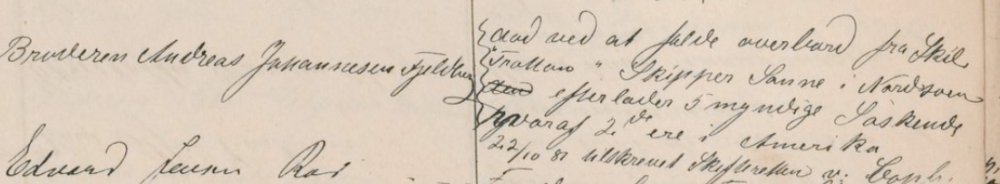 Broderen Andreas Johannesen Fjeldberg
død ved at falde overbord fra Skib
"Trottou" Skipper Sanne i Nordsøen
efterlader 5 myndige Søskende
hvoraf 2de ere i Amerika
22/10 81 tilskrevet Skifteretten v:
Edvard Jensen